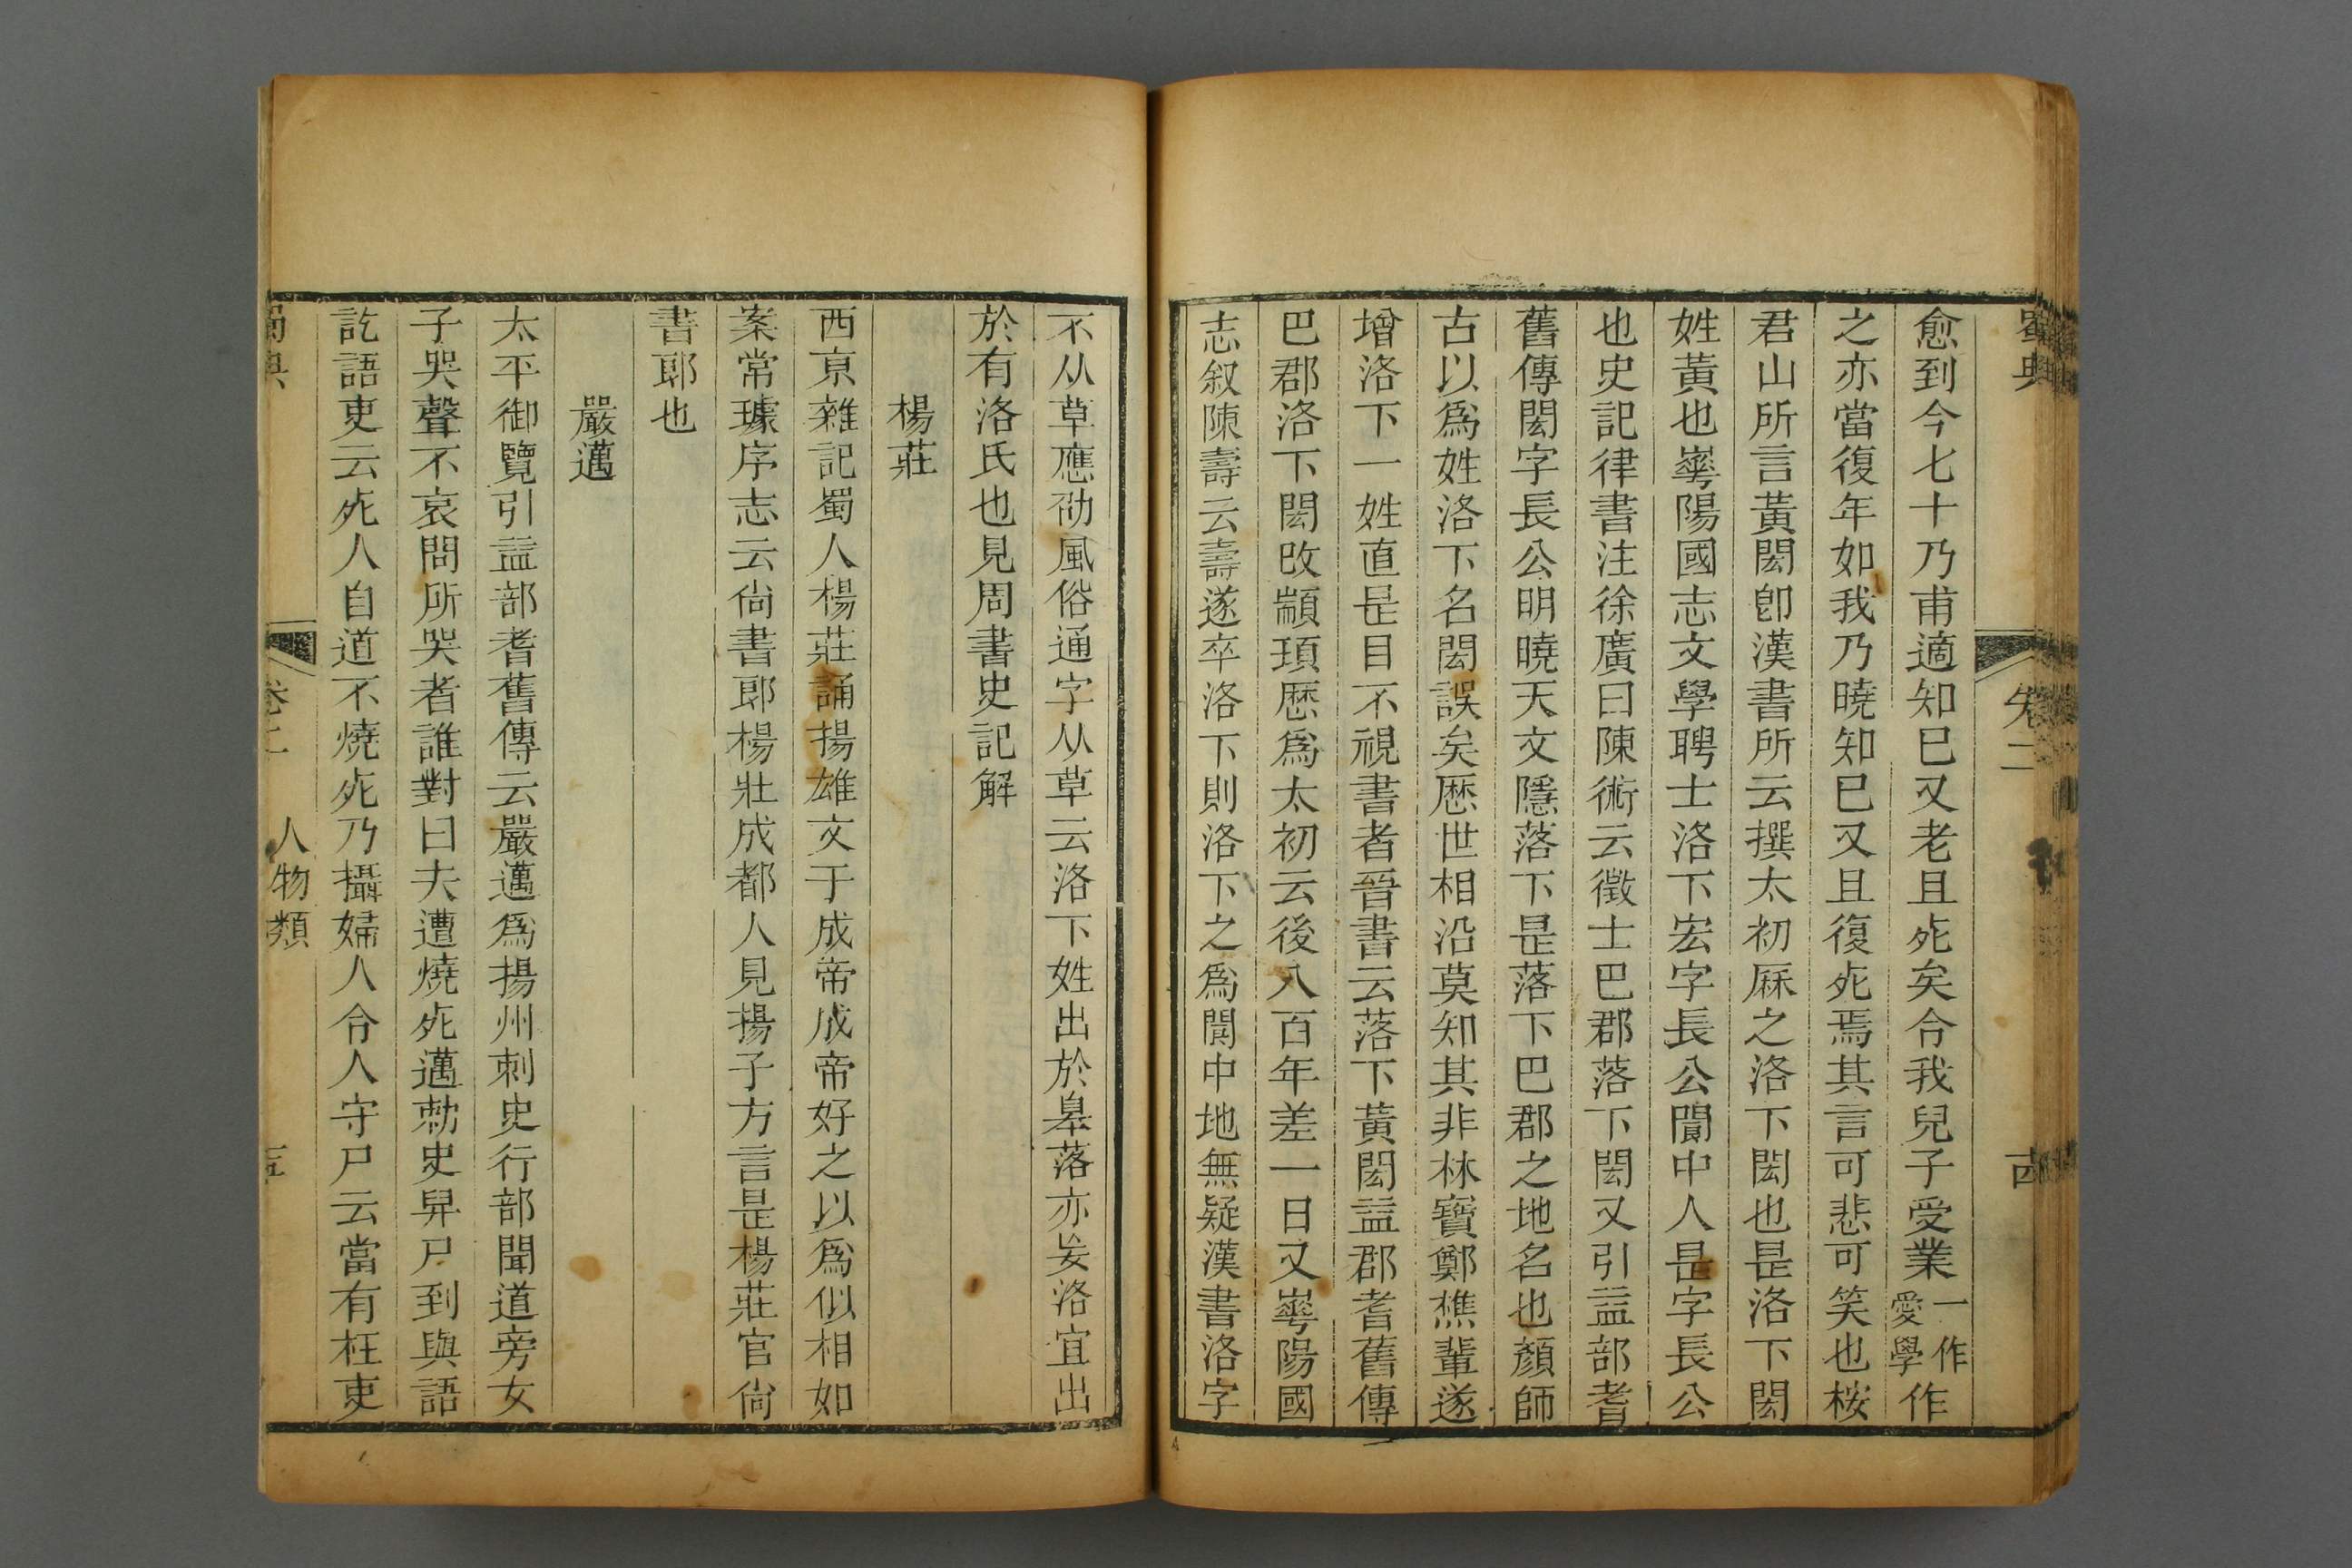 蜀典 卷二
愈到今七十乃甫適知巳又老且死矣令我兒子受業一作愛學作
之亦當復年如我乃曉知巳又且復死焉其言可悲可笑也桉
君山所言黃閎卽漢書所云撰太初厤之洛下閎也是洛下閎
姓黃也崋陽國志文學聘士洛下宏字長公閬中人是字長公
也史記律書注徐廣曰陳術云徵士巴郡落下閎又引益部耆
舊傳閎字長公明曉天文隱落下是落下巴郡之地名也顏師
古以爲姓洛下名閎誤矣歷世相沿莫知其非林寶鄭樵輩遂
增洛下一姓直是目不視書者晉書云落下黃閎益郡耆舊傳
巴郡洛下閎改顓頊歷爲太初云後八百年差一日又崋陽國
志叙陳壽云壽遂卒洛下則洛下之爲閬中地無疑漢書洛字
不从草應劭風俗通字从草云洛下姓出於皋落亦妄洛宜出
於有洛氏也見周書史記解
楊莊
西京雜記蜀人楊莊誦揚雄文于成帝成帝好之以爲似相如
案常璩序志云尙書郎楊壯成都人見揚子方言是楊莊官尙
書郎也
嚴邁
太平御覽引益部耆舊傳云嚴邁爲揚州刺史行部聞道旁女
子哭聲不哀問所哭者誰對曰夫遭燒死邁勅史舁尸到與語
訖語吏云死人自道不燒死乃攝婦人令人守尸云當有枉吏
蜀典 卷二 人物類